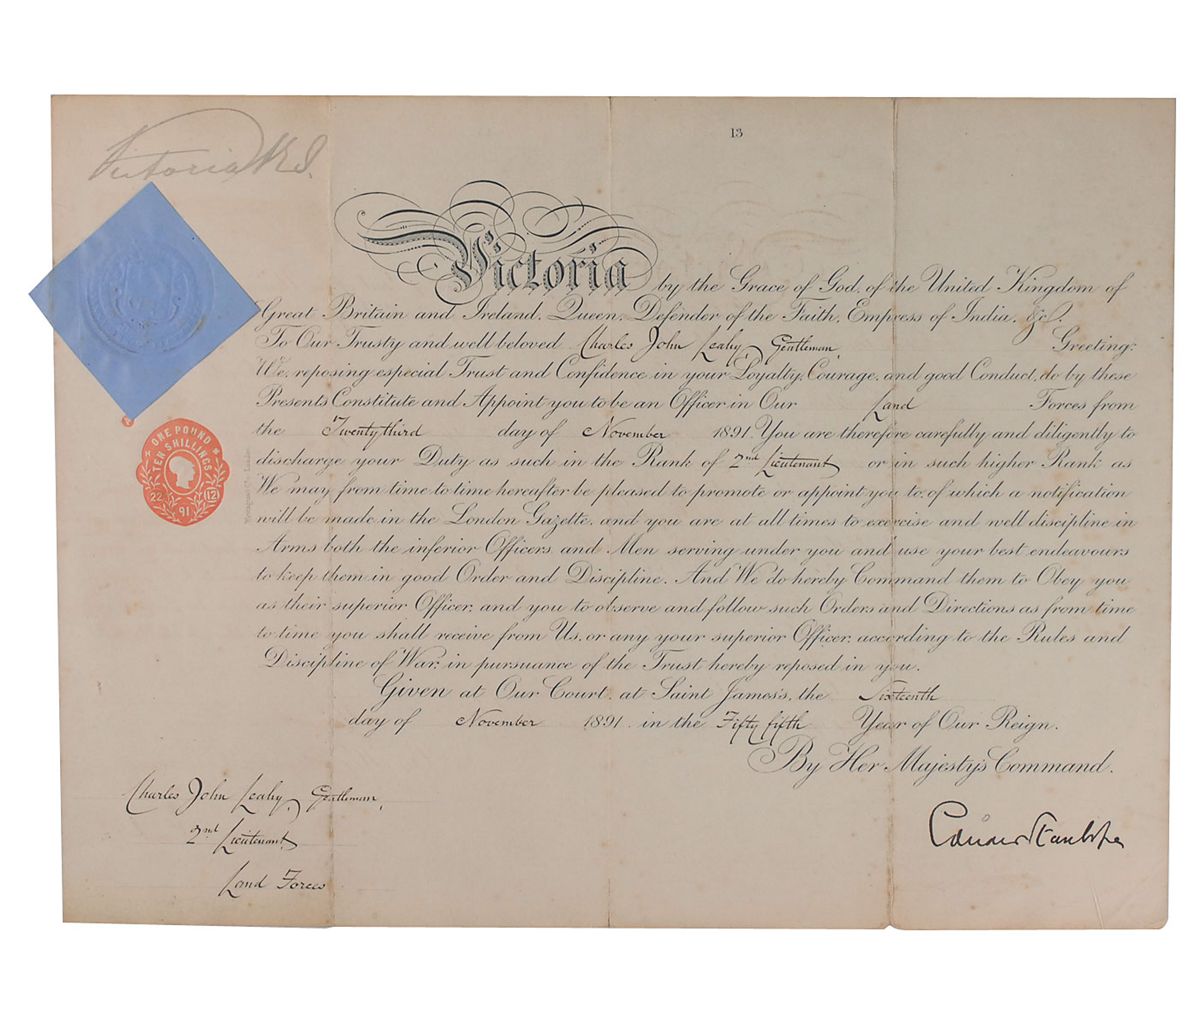 13
Victoria R I
Victoria by the Grace of God, of the United Kingdom of
Great Britain and Ireland, Queen, Defender of the Faith, Empress of India, &c.
To Our Trusty and well beloved Charles John Leahy, Gentleman, Greeting:
We, reposing especial Trust and Confidence in your Loyalty, Courage, and good Conduct, do by these
Presents Constitute and Appoint you to be an Officer in Our Land Forces from
the Twenty third day of November 1891. You are therefore carefully and diligently to
discharge your Duty as such in the Rank of 2nd Lieutenant or in such higher Rank as
We may from time to time hereafter be pleased to promote or appoint you to, of which a notification
will be made in the London Gazette, and you are at all times to exercise and well discipline in
Arms both the inferior Officers and Men serving under you and use your best endeavours
to keep them in good Order and Discipline. And We do hereby Command them to Obey you
as their superior Officer, and you to observe and follow such Orders and Directions as from time
to time you shall receive from Us, or any your superior Officer, according to the Rules and
Discipline of War, in pursuance of the Trust hereby reposed in you.
Given at Our Court, at Saint James's, the Sixteenth
day of November 1891 in the Fifty fifth Year of Our Reign.
By Her Majesty's Command.
Edward Stanhope
ONE POUND
TEN SHILLINGS
22 12
91
Charles John Leahy, Gentleman,
2nd Lieutenant,
Land Forces